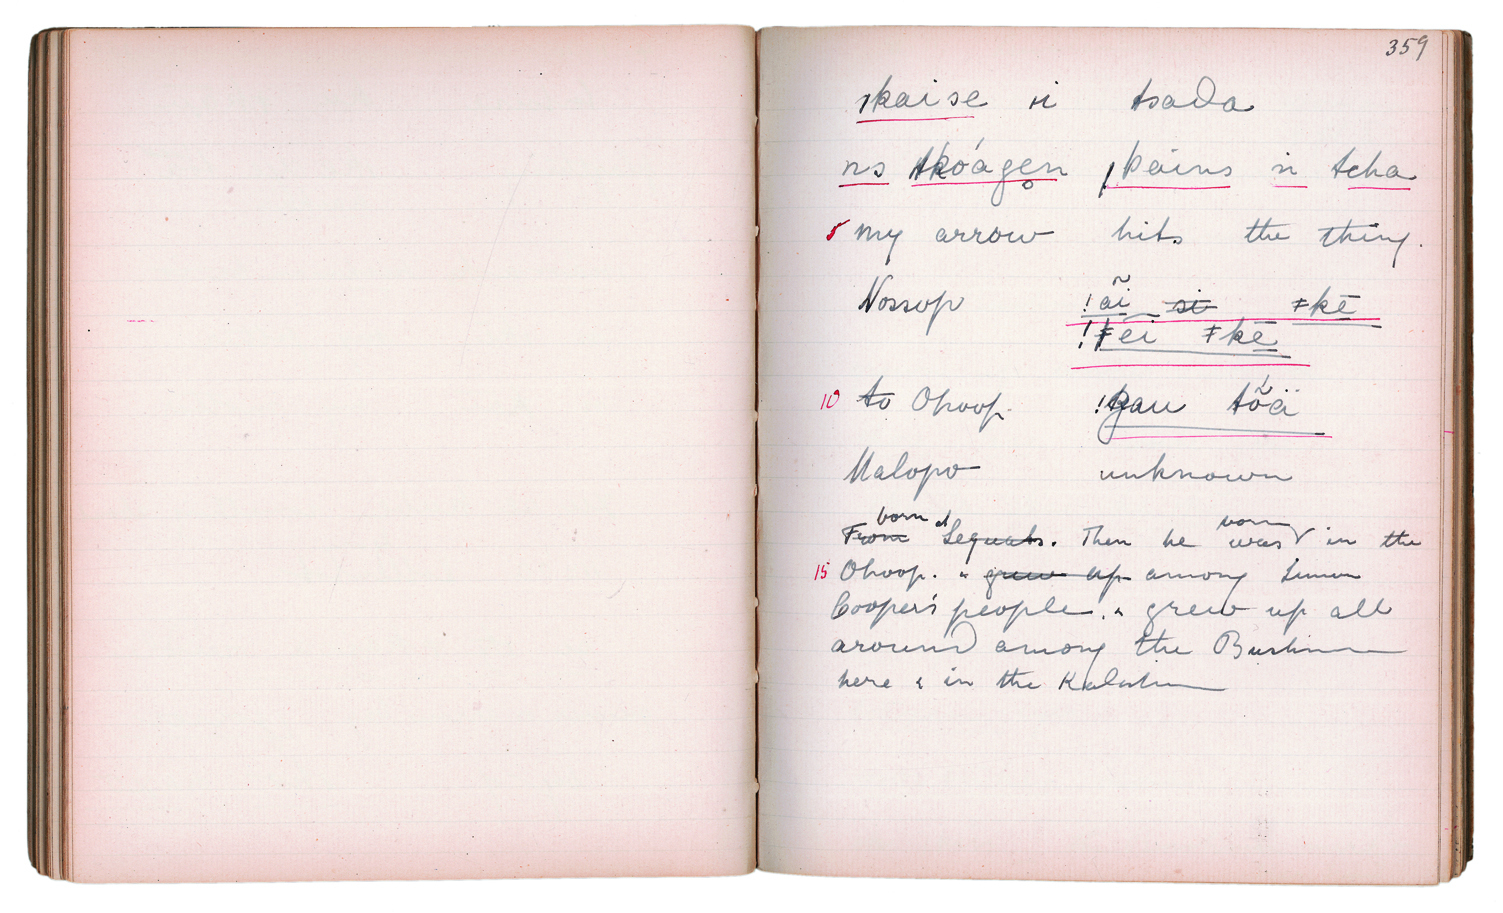 359
ǀkaise si tsada
ns tkóágen̥ ǀkains si tcha
5 my arrow hits the thing.
Nossop !ãi si ǂkē
!ei ǂkē
10 to Ohoop. !gau tŏä
Malopo unknown
born at born
From Lequats. Then he was in the
15 Ohoop. & grew up among Simon
Cooper's people. & grew up all
around among the Bushmen
here & in the Kalahari